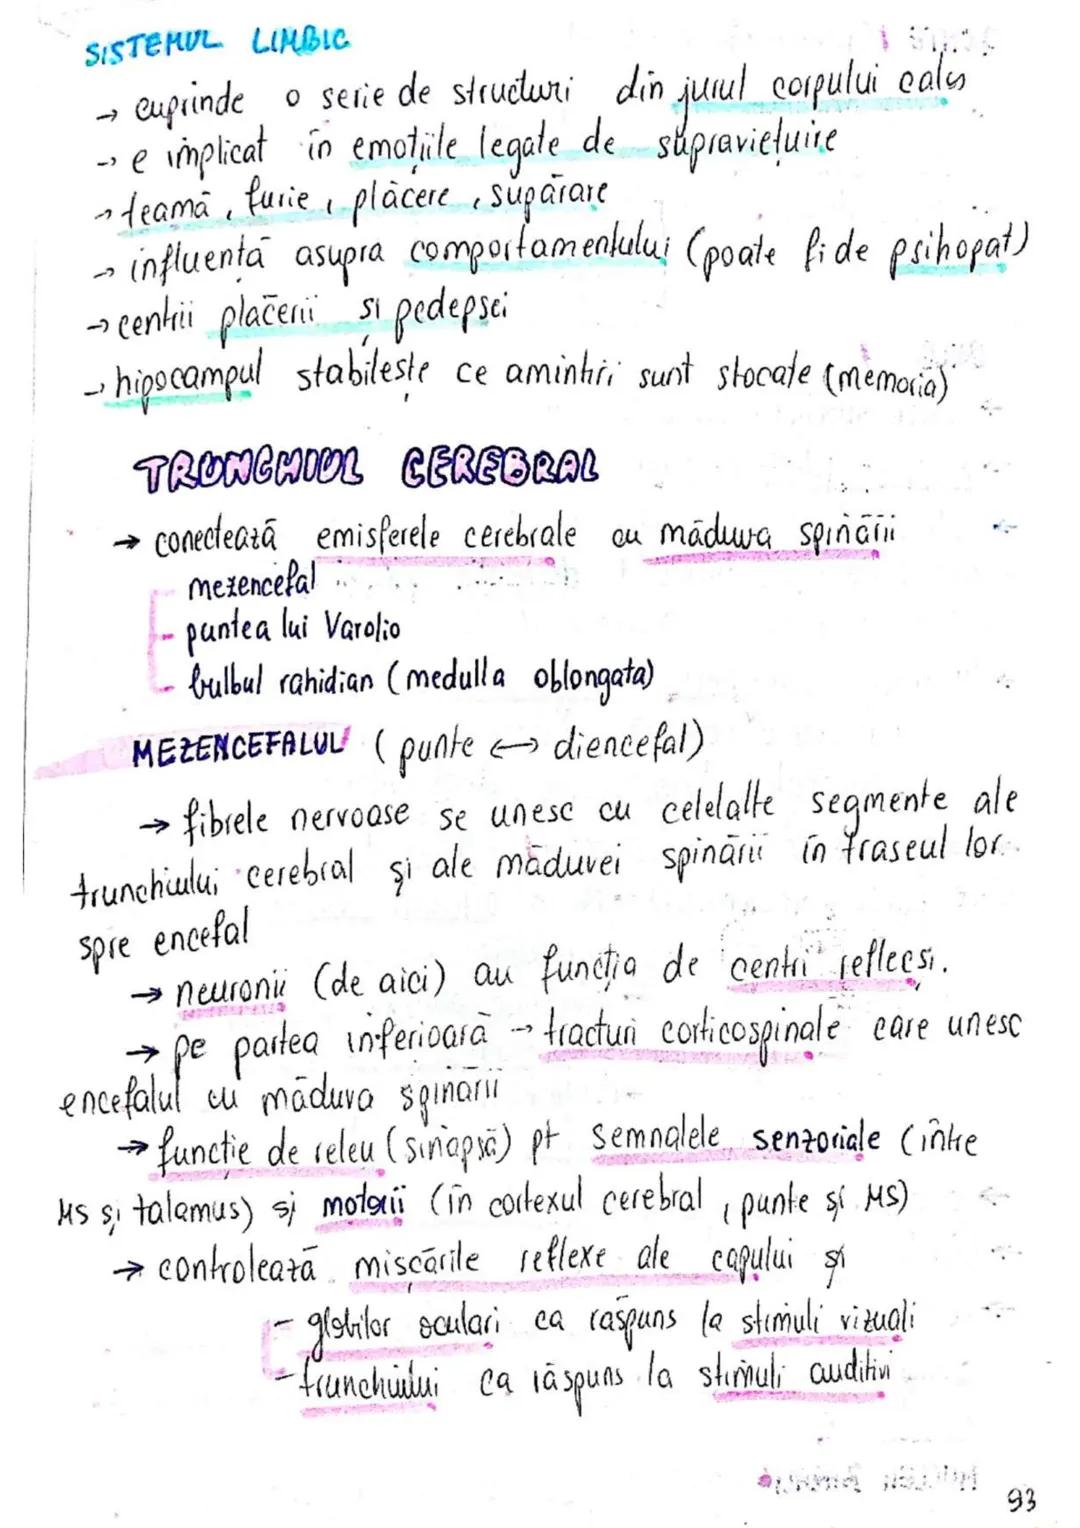 SISTEMUL LIMBIC
→ cuprinde o serie de structuri din jurul corpului calos
→ e implicat în emoțiile legate de supraviețuire
→ teamă, furie, plăcere, supărare
→ influență asupra comportamentului (poate fi de psihopat)
→ centrii plăcerii și pedepsei
→ hipocampul stabilește ce amintiri sunt stocate (memoria)
TRUNCHIUL CEREBRAL
→ conectează emisferele cerebrale cu măduva spinării
mezencefal
- puntea lui Varolio
- bulbul rahidian (medulla oblongata)
MEZENCEFALUL (punte ↔ diencefal)
→ fibrele nervoase se unesc cu celelalte segmente ale
trunchiului cerebral și ale măduvei spinării în traseul lor
spre encefal
→ neuronii (de aici) au funcția de centri reflecși.
→ pe partea inferioară → tracturi corticospinale care unesc
encefalul cu măduva spinării
→ funcție de releu (sinapsă) pt semnalele senzoriale (între
MS și talamus) și motorii (în cortexul cerebral, punte și MS)
→ controlează mișcările reflexe ale capului și
- globilor oculari ca răspuns la stimuli vizuali
- trunchiului ca răspuns la stimuli auditivi
93